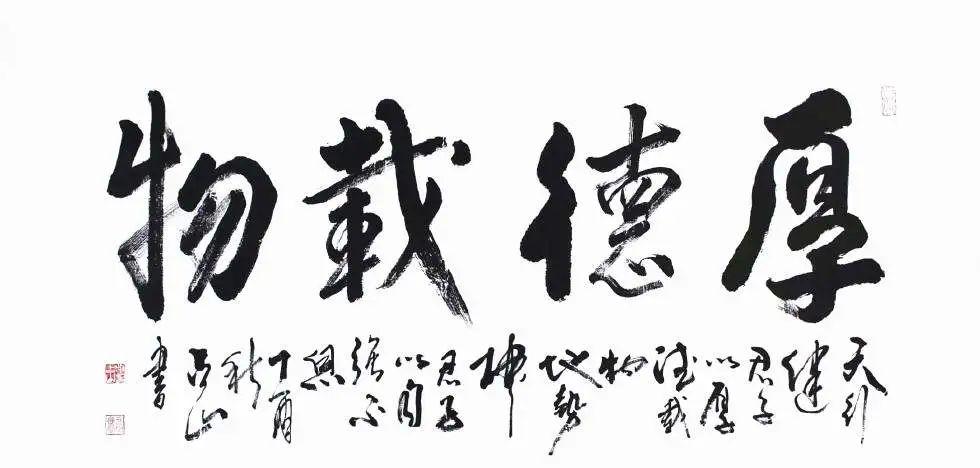 厚德載物
天行
健
君子
以厚
德載
物
地勢
坤
君子
以自
强不
息
丁酉
秋
山
書